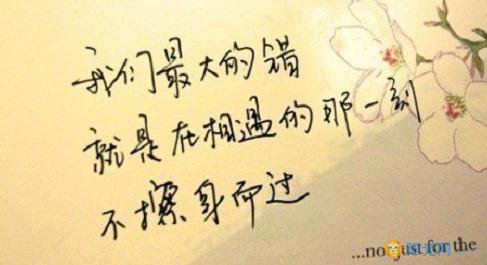 我们最大的错
就是在相遇的那一刻
不擦身而过
...not just for the